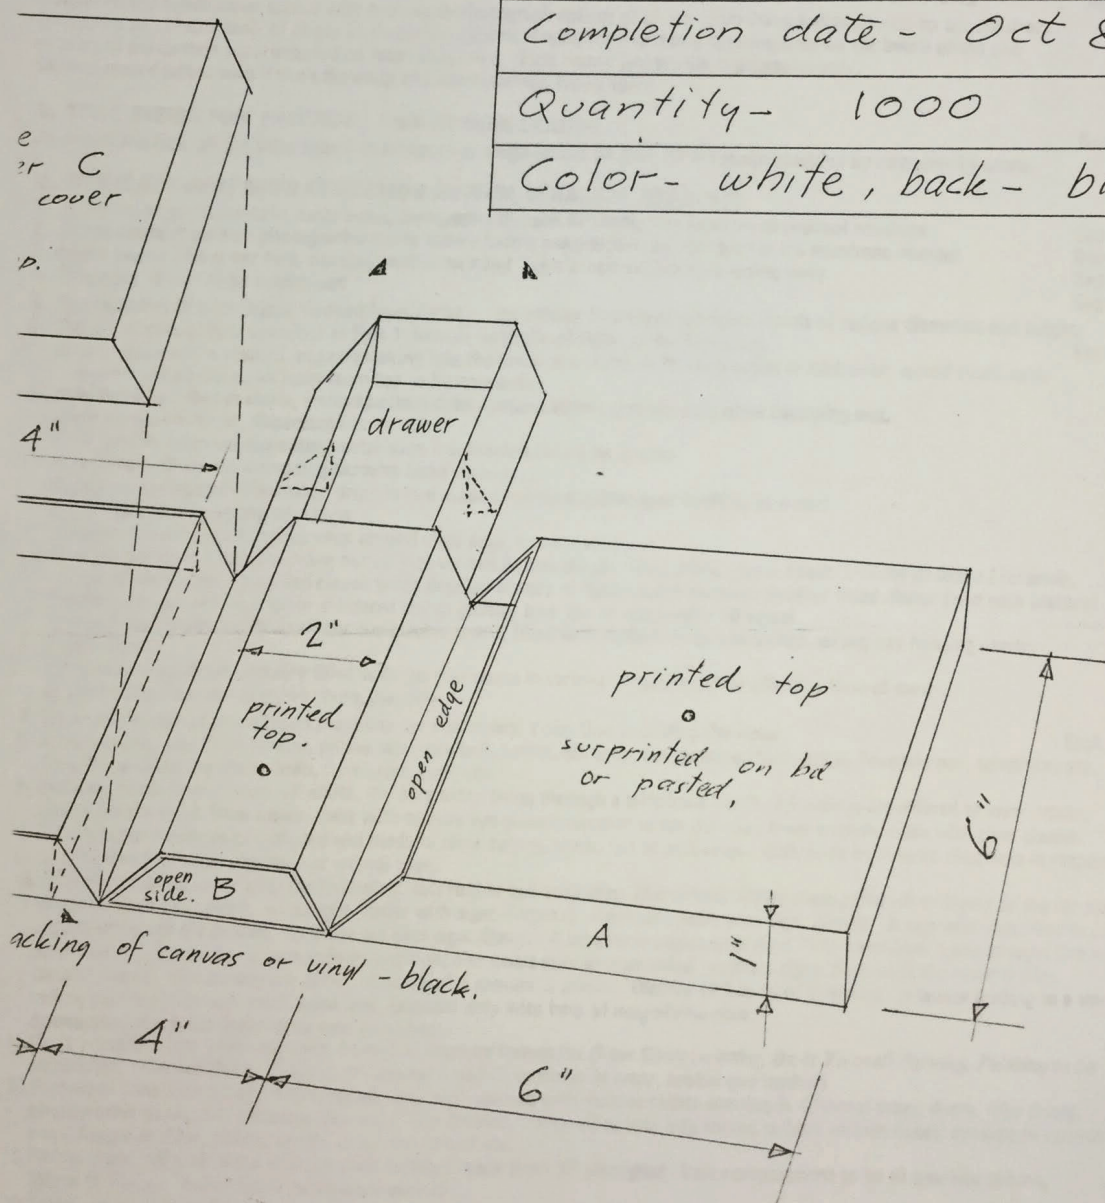 Completion date - Oct 8
Quantity - 1000
Color - white, back -
C
cover
4"
drawer
2"
printed
top.
open edge
printed top
surprinted on bd
or pasted.
6"
open
side. B
A
1"
of canvas or vinyl - black.
4"
6"